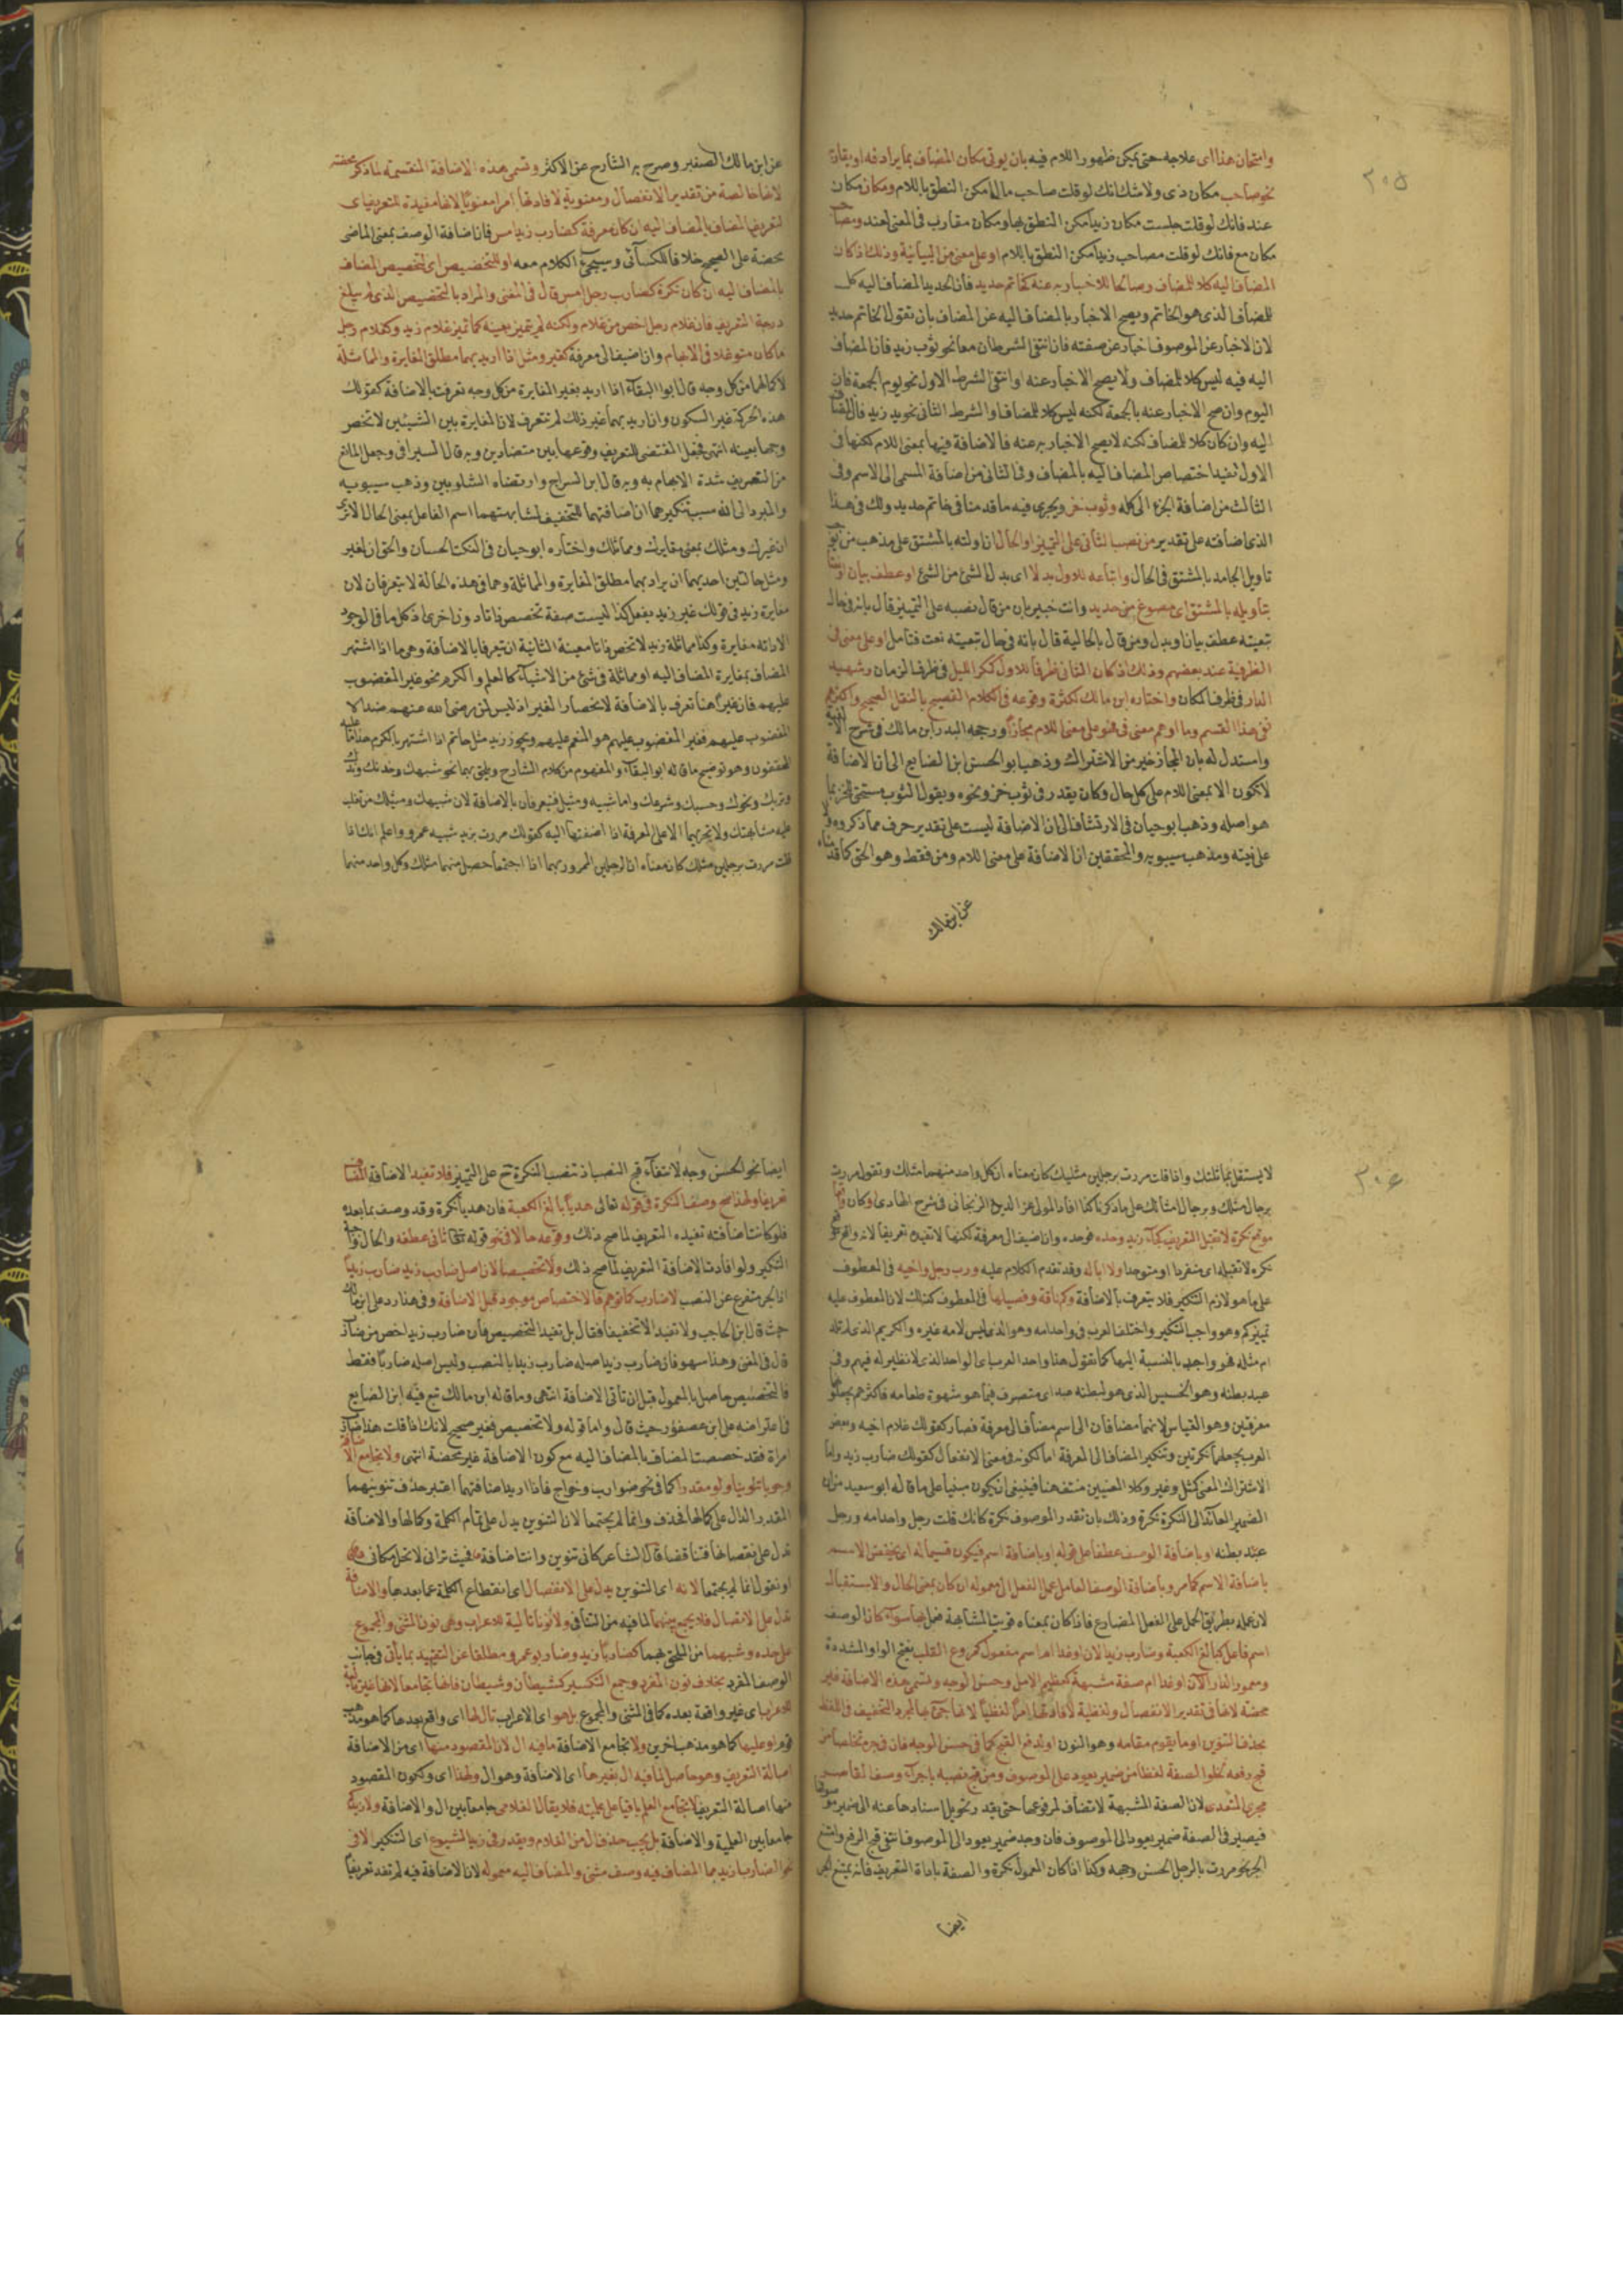 ٢٠٥
وامتحان هذا اى علاجه حتى يمكن ظهور اللام فيه بان يوتى مكان المضاف بما يرادفه او يقاربه
نحو صاحب مكان ذى ولا شك انك لو قلت صاحب مال امكن النطق باللام ومكان مكان
عند فانك لو قلت جلست مكان زيد امكن النطق بها ومكان مقارب فى المعنى لعند ومصاحب
مكان مع فانك لو قلت مصاحب زيد امكن النطق باللام او على معنى من البيانية وذلك اذا كان
المضاف اليه كلا للمضاف وصالحا للاخبار به عنه كخاتم حديد فان الحديد المضاف اليه كل
للمضاف الذى هو الخاتم ويصح الاخبار بالمضاف اليه عن المضاف بان تقول الخاتم حديد
لان الاخبار عن الموصوف اخبار عن صفته فان انتفى الشرطان معا نحو ثوب زيد فان المضاف
اليه فيه ليس كلا للمضاف ولا يصح الاخبار عنه او انتفى الشرط الاول نحو يوم الجمعة فان
اليوم وان صح الاخبار عنه بالجمعة لكنه ليس كلا للمضاف او الشرط الثانى نحو يد زيد فان المضاف
اليه وان كان كلا للمضاف لكنه لا يصح الاخبار به عنه فالاضافة فيها بمعنى اللام لكنها فى
الاول تفيد اختصاص المضاف اليه بالمضاف وفى الثانى من اضافة المسمى الى الاسم وفى
الثالث من اضافة الجزء الى كله وثوب خز ويجرى فيه ما قدمنا فى خاتم حديد ولك فى هذا
الذى اضافته على تقدير من نصب الثانى على التمييز او الحال ان اولته بالمشتق على مذهب من يوجب
تاويل الجامد بالمشتق فى الحال واتباعه للاول بدلا اى بدل الشئ من الشئ او عطف بيان او نعتا
بتاويله بالمشتق اى مصوغ من حديد وانت خبير بان من قال بنصبه على التمييز قال بانه فى حال
تبعيته عطف بيان او بدل ومن قال بالحالية قال بانه فى حال تبعيته نعت فتامل او على معنى فى
الظرفية عند بعضهم وذلك اذ كان الثانى ظرفا للاول كمكر الليل فى ظرف الزمان وشهيد
الدار فى ظرف المكان واختاره ابن مالك لكثرة وقوعه فى الكلام الفصيح بالنقل الصحيح واكثرهم
نفى هذا القسم وما اوهم معنى فى فهو على معنى اللام مجازا ورجحه البدر ابن مالك فى شرح الالفية
واستدل له بان المجاز خير من الاشتراك وذهب ابو الحسن ابن الضايع الى ان الاضافة
لا تكون الا بمعنى اللام على كل حال وكان يقدر فى ثوب خز ونحوه ويقول الثوب مستحق للخز بما
هو اصله وذهب ابو حيان فى الارتشاف الى ان الاضافة ليست على تقدير حرف مما ذكروه ولا
على نيته ومذهب سيبويه والمحققين ان الاضافة على معنى اللام ومن فقط وهو الحق كما قدمناه
عن ابن مالك
عن ابن مالك الصغير وصرح به الشارح عن الاكثر وتسمى هذه الاضافة المنقسمة لما ذكر محضة
لانها خالصة من تقدير الانفصال ومعنوية لافادتها امرا معنويا لانها مفيدة لتعريف اى
لتعريف المضاف بالمضاف اليه ان كان معرفة كضارب زيد امس فان اضافة الوصف بمعنى الماضى
محضة على الصحيح خلافا للكسائى وسيجئ الكلام معه او للتخصيص اى لتخصيص المضاف
بالمضاف اليه ان كان نكرة كضارب رجل امس قال فى المغنى والمراد بالتخصيص الذى لم يبلغ
درجة التعريف فان غلام رجل اخص من غلام ولكنه لم يتميز بعينه كما تميز غلام زيد وكغلام رجل
ما كان متوغلا فى الابهام وان اضيف الى معرفة كغير ومثل اذا اريد بهما مطلق المغايرة والمماثلة
لا كمالهما من كل وجه قال ابو البقاء اذا اريد بغير المغايرة من كل وجه تعرفت بالاضافة كقولك
هذه الحركة غير السكون وان اريد بهما غير ذلك لم تتعرف لان المغايرة بين الشيئين لا تخص
وجها بعينه انتهى فجعل المقتضى للتعريف وقوعها بين متضادين وبه قال السيرافى وجعل المانع
من التعريف شدة الابهام به وبه قال ابن السراج وارتضاه الشلوبين وذهب سيبويه
والمبرد الى انه سبب تنكيرهما ان اضافتهما للتخفيف لمشابهتهما اسم الفاعل بمعنى الحال الا ترى
ان غيرك ومثلك بمعنى مغايرك ومماثلك واختاره ابو حيان فى النكت الحسان والحق ان لغير
ومثل حالتين احديهما ان يراد بهما مطلق المغايرة والمماثلة وهما فى هذه الحالة لا يتعرفان لان
مغايرة زيد فى قولك غير زيد يفعل كذا ليست صفة تخصص ذاتا دون اخرى اذ كل ما فى الوجود
الا ذاته مغايرة وكذا مماثلة زيد لا تخص ذاتا معينة الثانية ان يتعرفا بالاضافة وهى ما اذا اشتهر
المضاف بمغايرة المضاف اليه او مماثلة فى شئ من الاشياء كالعلم والكرم نحو غير المغضوب
عليهم فان غيرا هنا تعرف بالاضافة لانحصار الغير اذ ليس لمن رضى الله عنهم ضد الا
المغضوب عليهم فغير المغضوب عليهم هو المنعم عليهم ونحو زيد مثل حاتم اذا اشتهر بالكرم هذا ما عليه
المحققون وهو توضيح ما قاله ابو البقاء والمفهوم من كلام الشارح ويلحق بهما نحو شبهك وخدنك وندك
وتربك ونحوك وحسبك وشرعك واما شبيه ومثيل فيتعرفان بالاضافة لان شبيهك ومثيلك من تغلب
عليه مشابهتك ولا تجريهما الا على المعرفة اذا اضفتهما اليه كقولك مررت بزيد شبيه عمرو واعلم انك اذا
قلت مررت برجلين مثلك كان معناه ان الرجلين الممرور بهما اذا اجتمعا حصل منهما مثلك وكل واحد منهما
٢٠٦
لا يستقل بمماثلتك واذا قلت مررت برجلين مثليك كان معناه ان كل واحد منهما مثلك وتقول مررت
برجال مثلك وبرجال امثالك على ما ذكرنا كذا افاد المولى عز الدين الزنجانى فى شرح الهادى او كان واقعا
موقع نكرة لا تقبل التعريف كجاء زيد وحده فوحده وان اضيف الى معرفة لكنها لا تفيده تعريفا لانه واقع موقع
نكرة لا تقبله اى منفردا او متوحدا ولا ابا له وقد تقدم الكلام عليه ورب رجل واخيه فى المعطوف
على ما هو لازم التنكير فلا يتعرف بالاضافة وكم ناقة وفصيلها فى المعطوف كذلك لان المعطوف عليه
تمييز كم وهو واجب التنكير واختلف العرب فى واحد امه وهو الذى ليس لامه غيره والكريم الذى لم تلد
ام مثله فهو واحد بالنسبة اليها كما تقول هذا واحد العرب اى الواحد الذى لا نظير له فيهم وفى
عبد بطنه وهو الخسيس الذى هو لبطنه عبد اى متصرف فيما هو شهوة طعامه فاكثرهم يجعلهما
معرفتين وهو القياس لانهما مضافان الى اسم مضاف الى معرفة فصار كقولك غلام اخيه وبعض
العرب يجعلهما نكرتين وتنكير المضاف الى المعرفة اما لكونه فى معنى الانفصال كقولك ضارب زيد واما
الاشتراك المعنى كمثل وغير وكلا المعنيين منتف هنا فينبغى ان يكون مبنيا على ما قاله ابو سعيد من ان
الضمير العائد الى النكرة نكرة وذلك بان تقدر الموصوف نكرة كانك قلت رجل واحد امه ورجل
عبد بطنه او باضافة الوصف عطفا على قوله او باضافة اسم فيكون قسيما له اى يخفض الاسم
باضافة الاسم كما مر وباضافة الوصف العامل عمل الفعل الى معموله ان كان بمعنى الحال والاستقبال
لان عمله بطريق الحمل على الفعل المضارع فاذا كان بمعناه قويت المشابهة فيعمل بها سواء كان الوصف
اسم فاعل كبالغ الكعبة وضارب زيد الان او غدا ام اسم مفعول كمروع القلب بفتح الواو المشددة
ومعمور الدار الان او غدا ام صفة مشبهة كعظيم الامل وحسن الوجه وتسمى هذه الاضافة غير
محضة لانها فى تقدير الانفصال ولفظية لافادتها امرا لفظيا لانها جئ بها لمجرد التخفيف فى اللفظ
بحذف التنوين او ما يقوم مقامه وهو النون او لدفع القبح كما فى حسن الوجه فان فى جره تخلصا من
قبح رفعه لخلو الصفة لفظا من ضمير يعود على الموصوف ومن قبح نصبه باجراء وصف القاصر
مجرى المتعدى لان الصفة المشبهة لا تضاف لمرفوعها حتى يقدر تحويل اسنادها عنه الى ضمير موصوفها
فيصير فى الصفة ضمير يعود الى الموصوف فان وجد ضمير يعود الى الموصوف انتفى قبح الرفع وامتنع
الجر نحو مررت بالرجل الحسن وجهه وكذا اذا كان المعمول نكرة والصفة باداة التعريف فانه يمتنع الجر
ايضا
ايضا نحو الحسن وجه لانتفاء قبح النصب اذ تنصب النكرة ح على التمييز فلا تفيد الاضافة المضاف
تعريفا ولهذا صح وصف النكرة فى قوله تعالى هديا بالغ الكعبة فان هديا نكرة وقد وصف بما بعده
فلو كانت اضافته تفيده التعريف لما صح ذلك ووقوعه حالا فى نحو قوله تعالى ثانى عطفه والحال واجبة
التنكير ولو افادت الاضافة التعريف لما صح ذلك ولا تخصيصا لان اصل ضارب زيد ضارب زيدا
اذ الجر متفرع عن النصب لا ضارب كما توهم فالاختصاص موجود قبل الاضافة وفى هذا رد على ابن مالك
حيث قال ابن الحاجب ولا تفيد الا تخفيفا فقال بل تفيد التخصيص فان ضارب زيد اخص من ضارب
قال فى المغنى وهذا سهو فان ضارب زيد اصله ضارب زيدا بالنصب وليس اصله ضاربا فقط
فالتخصيص حاصل بالمعمول قبل ان تاتى الاضافة انتهى وما قاله ابن مالك تبع فيه ابن الضايع
فى اعتراضه على ابن عصفور حيث قال واما قوله ولا تخصيص فغير صحيح لانك اذا قلت هذا ضارب
امراة فقد خصصت المضاف بالمضاف اليه مع كون الاضافة غير محضة انتهى ولا تجامع الاضافة
وجوبا تنوينا ولو مقدرا كما فى نحو ضوارب وحواج فاذا اريد اضافتهما اعتبر حذف تنوينهما
المقدر الدال على كمالها فحذف وانما لم يجتمعا لان التنوين يدل على تمام الكلمة وكمالها والاضافة
تدل على نقصانها فتناقضا قال الشاعر كانى تنوين وانت اضافة فحيث ترانى لا تحل مكانى
او نقول انما لم يجتمعا لانه اى التنوين يدل على الانفصال اى انقطاع الكلمة عما بعدها والاضافة
تدل على الاتصال فلا يجمع بينهما لما فيه من التنافى ولا نونا تالية للاعراب وهى نون المثنى والمجموع
على حده وشبههما من الملحق بهما كضاربا زيد وضاربو عمرو ومطلقا عن التقييد بما ياتى فى جانب
الوصف المفرد بخلاف نون المفرد وجمع التكسير كشيطان وشيطان فانها تجامعها لانها غير تالية
للاعراب اى غير واقعة بعده كما فى المثنى والمجموع بل هو اى الاعراب تال لها اى واقع بعدها كما هو مذهب
قوم او عليها كما هو مذهب اخرين ولا تجامع الاضافة ما فيه ال لان المقصود منها اى من الاضافة
اصالة التعريف وهو حاصل لما فيه ال بغيرها اى الاضافة وهو ال ولهذا اى ولكون المقصود
منها اصالة التعريف لا تجامع العلم باقيا على علميته فلا يقال الغلامى جامعا بين ال والاضافة ولا زيدكم
جامعا بين العلمية والاضافة بل يجب حذف ال من الغلام ويقدر فى زيد الشيوع اى التنكير الا فى
نحو الضاربا زيد مما المضاف فيه وصف مثنى والمضاف اليه معموله لان الاضافة فيه لم تفد تعريفا